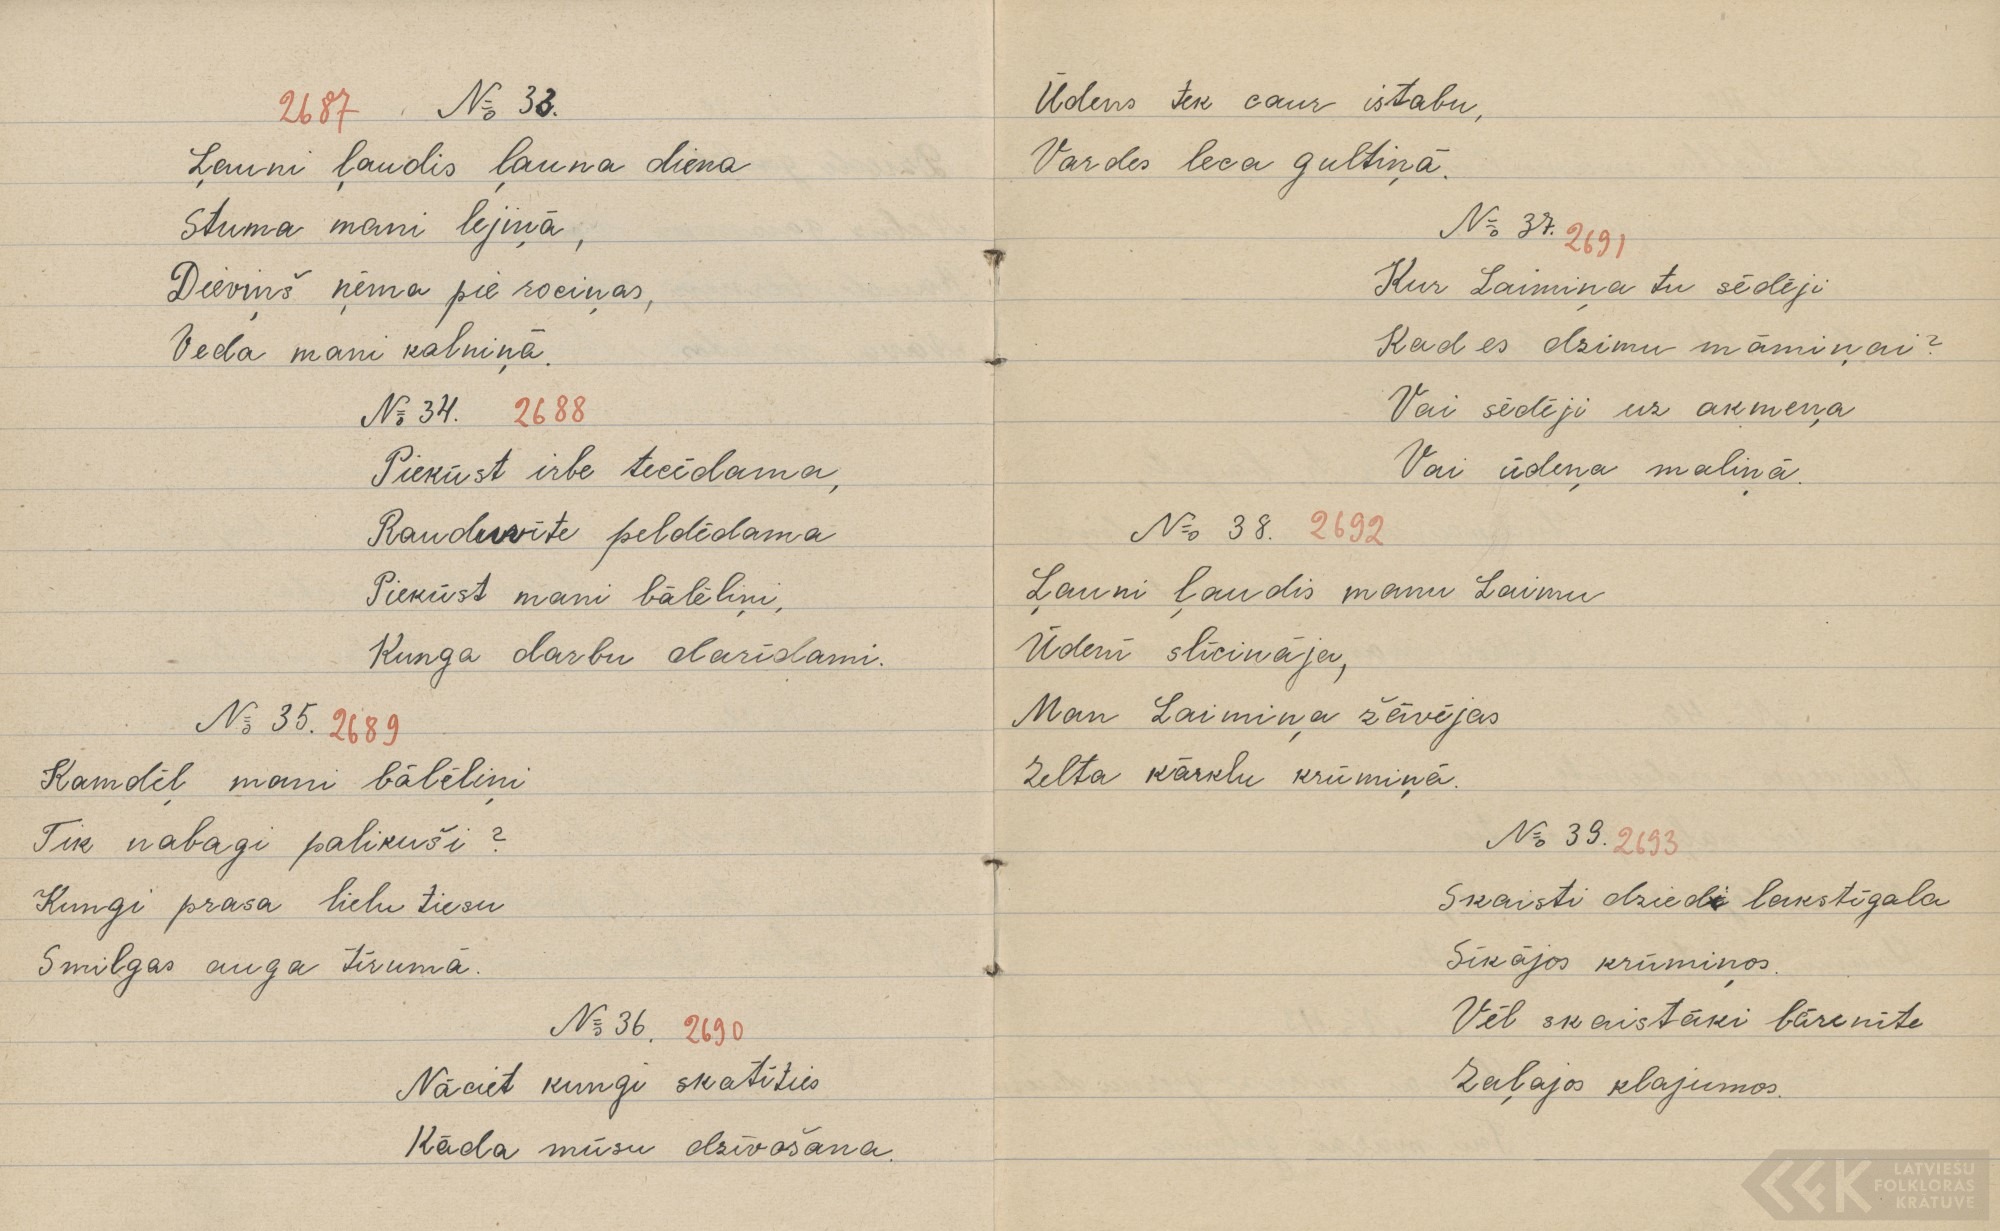 2687 № 33.
Ļauni ļaudis ļauna diena
Stuma mani lejiņā,
Dieviņš ņēma pie rociņas,
Veda mani kalniņā.
№ 34. 2688
Piekūst irbe tecēdama,
Rauduvīte peldēdama
Piekūst mani bālēliņi,
Kunga darbu darīdami.
№ 35. 2689
Kamdēļ mani bālēliņi
Tik nabagi palikuši?
Kungi prasa lielu tiesu
Smilgas auga tīrumā.
№ 36. 2690
Nāciet kungi skatīties
Kāda mūsu dzīvošana.
Ūdens tek caur istabu,
Vardes leca gultiņā.
№ 37. 2691
Kur Laimiņa tu sēdēji
Kad es dzimu māmiņai?
Vai sēdēji uz akmeņa
Vai ūdeņa maliņā.
№ 38. 2692
Ļauni ļaudis manu Laimu
Ūdenī slīcināja,
Man Laimiņa žāvējas
Zelta kārklu krūmiņā.
№ 39. 2693
Skaisti dzied lakstīgala
Sīkājos krūmiņos.
Vēl skaistāki bārenīte
Zaļajos klajumos.
LATVIEŠU
FOLKLORAS
KRĀTUVE